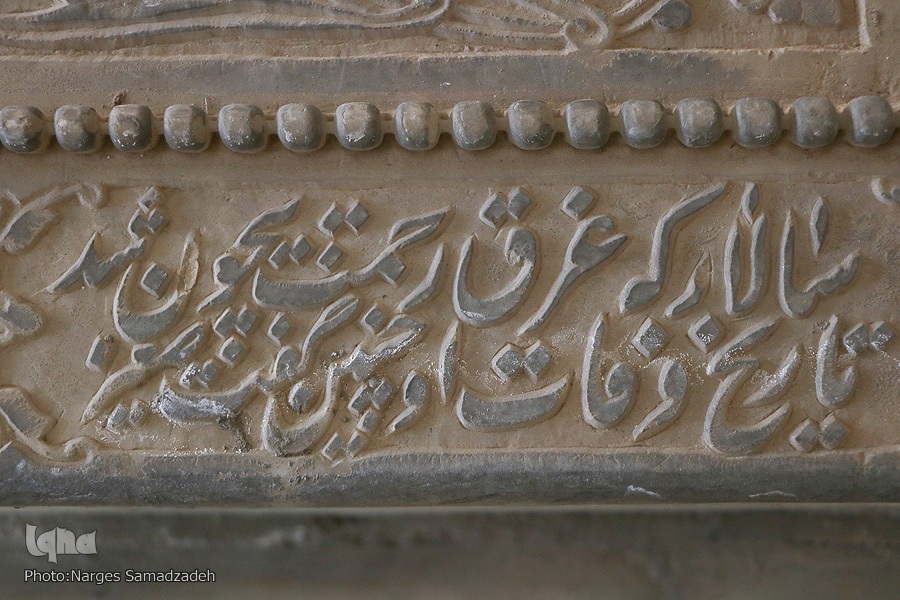 سالار که غرق رحمت بیچون شد
تاریخ وفات او چنین گفت
Iqna
Photo:Narges Samadzadeh